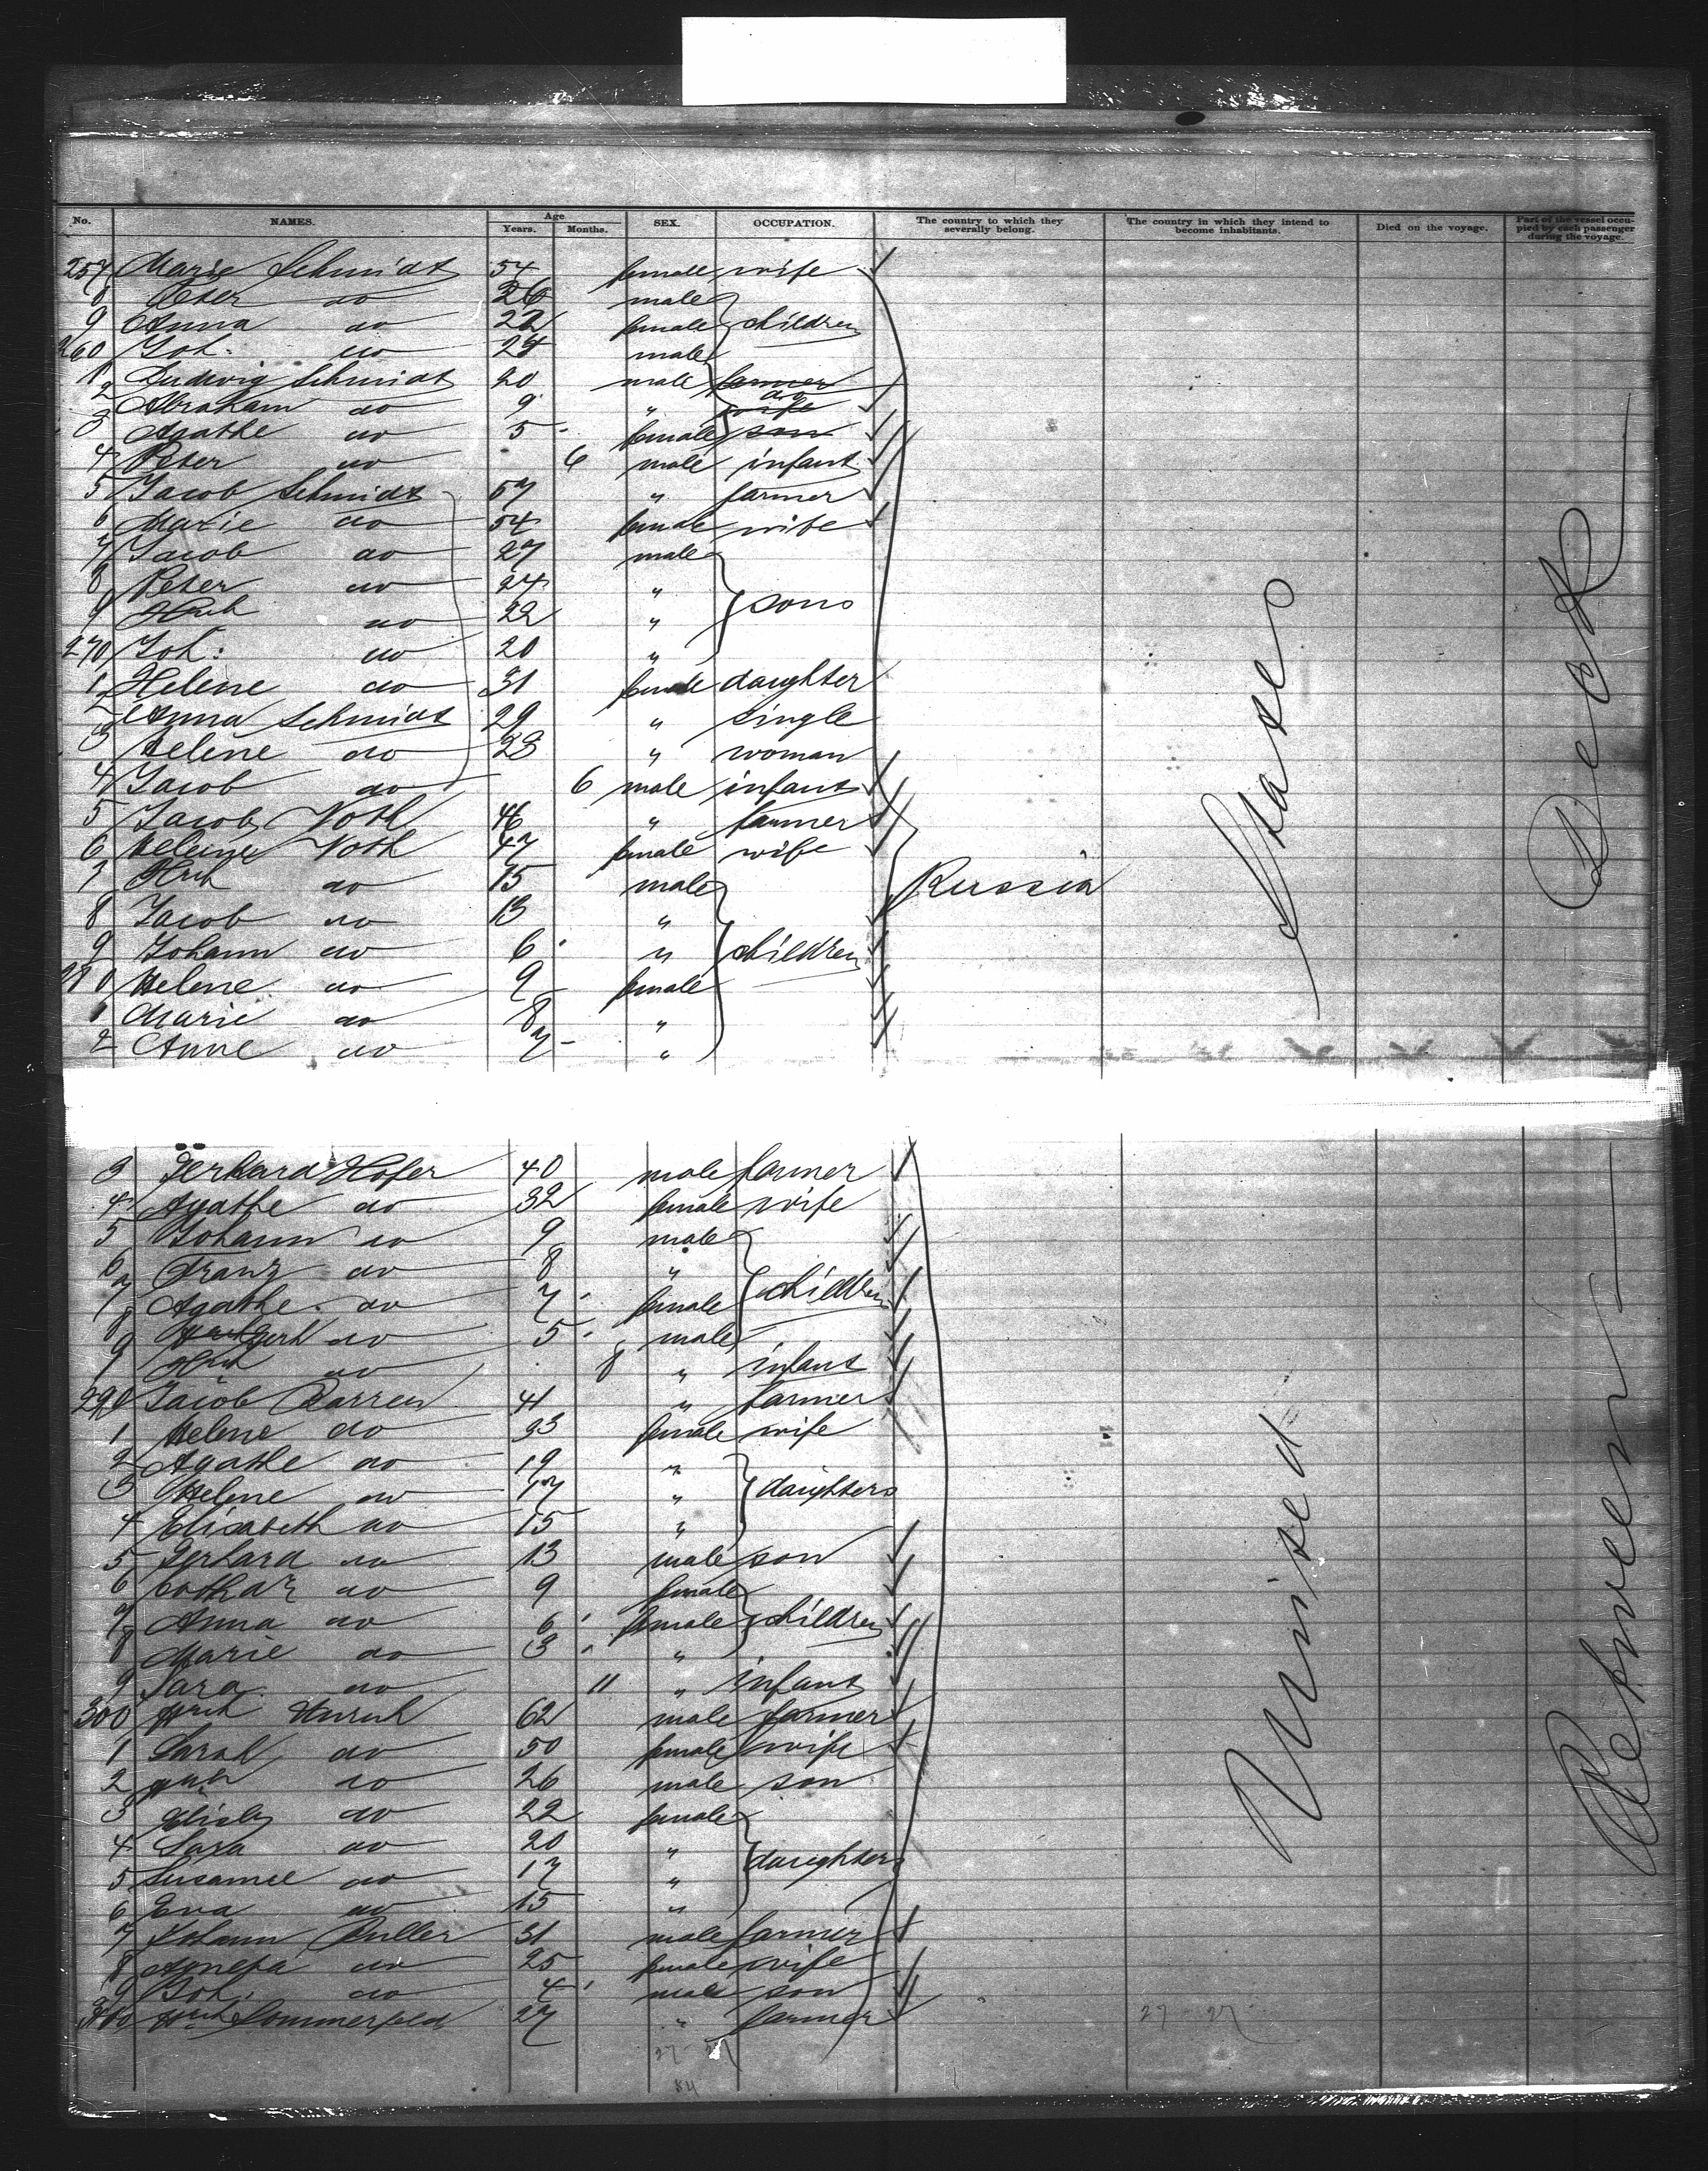 No. NAMES. Age Years. Months. SEX. OCCUPATION. The country to which they severally belong. The country in which they intend to become inhabitants. Died on the voyage. Part of the vessel occupied by each passenger during the voyage.
257 Marie Schmidt 54 female wife
8 Peter do 26 male
9 Anna do 22 female children
260 Joh: do 24 male
1 Ludwig Schmidt 20 male farmer
2 Abraham do 9 " do wife
3 Agathe do 5 female son
4 Peter do 6 male infant
5 Jacob Schmidt 57 " farmer
6 Marie do 54 female wife
7 Jacob do 27 male
8 Peter do 24 "
9 Hrch do 22 " sons
270 Joh: do 20 "
1 Helene do 31 female daughter
2 Anna Schmidt 29 " single
3 Helene do 23 " woman
4 Jacob do 6 male infant
5 Jacob Voth 46 " farmer
6 Helene Voth 47 female wife
7 Hrch do 15 male Russia
8 Jacob do 13 "
9 Johann do 6 " children
280 Helene do 9 female
1 Marie do 8 "
2 Anne do 7 "
3 Gerhard Hofer 40 male farmer
4 Agathe do 32 female wife
5 Johann do 9 male
6 Franz do 8 "
7 Agathe do 7 female children
8 Gerh do 5 male
9 Hrch do 8 " infant
290 Jacob Barren 41 " farmer
1 Helene do 33 female wife
2 Agathe do 19 "
3 Helene do 17 " daughters
4 Elisabeth do 15 "
5 Gerhard do 13 male son
6 do 9 female
7 Anna do 6 female children
8 Marie do 3 "
9 Sara do 11 " infant
300 Hrch Unruh 62 male farmer
1 Sarah do 50 female wife
2 do 26 male son
3 do 22 female
4 Sara do 20 "
5 Susanne do 17 " daughters
6 Eva do 15 "
7 Johann Buller 31 male farmer
8 do 25 female wife
9 Joh. do 4 male son
Hrch Sommerfeld 27 " farmer
27 - 27
84
27 - 27
United States
Between Deck